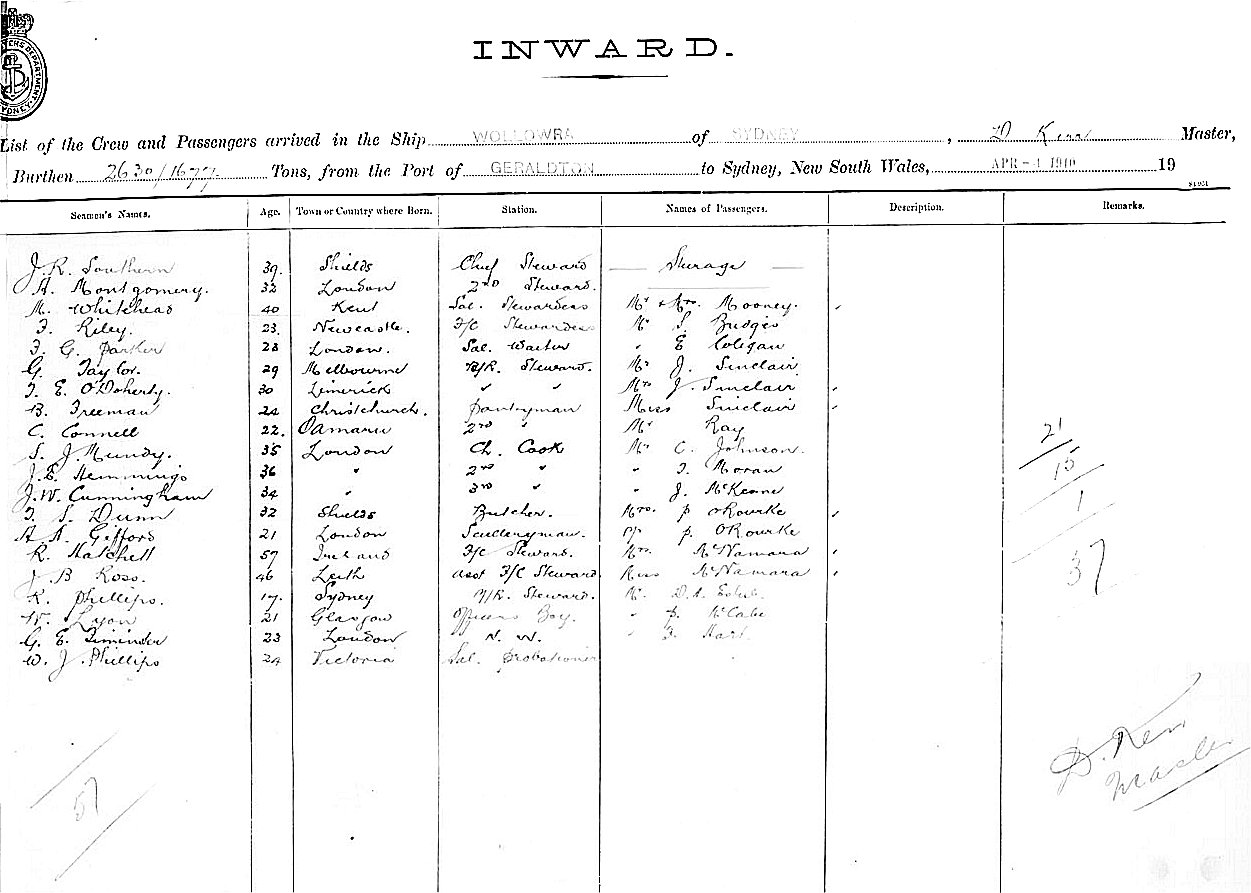 INWARD.
List of the Crew and Passengers arrived in the Ship WOLLOWRA of SYDNEY, D Kerr Master,
Burthen 2630/1677 Tons, from the Port of GERALDTON to Sydney, New South Wales, APR -4 1910 19
Seamen's Names. Age. Town or Country where Born. Station. Names of Passengers. Description. Remarks.
J. R. Southern 39. Shields Chief Steward — Sturage —
A. Montgomery. 32 London 2nd Steward.
M. Whitehead 40 Kent Sal. Stewardess Mr & Mrs. Mooney.
Riley. 23. Newcastle. F/C Stewardess Mr S. Budges
G. Parker 23 London. Sal. Waiter " E Coligan
G. Taylor. 29 Melbourne B/R. Steward. Mr J. Sinclair
E. O'Doherty. 30 Limerick " " Mrs J. Sinclair
B. Freeman 24 Christchurch. Pantryman Miss Sinclair
C. Connell 22. Oamaru 2nd " Mr Ray
S. J. Mundy. 35 London Ch. Cook Mr C. Johnson.
J. E. Hemmings 36 " 2nd " " Moran
J. W. Cunningham 34 " 3rd " " J. McKenne
S. Dunn 32 Shields Butcher. Mrs. P O'Rourke
A. A. Gifford 21 London Sculleryman. P. O'Rourke
R. Hatchell 57 Ireland F/C Steward. Mrs. McNamara
J B Ross. 46 Leith Asst F/C Steward. Miss McNamara
R. Phillips. 17. Sydney Steward.
W. Lyon 21 Glasgow Officers Boy. " P. McCabe
G. E. 23 London N. W. " F. Hart
W. J. Phillips 24 Victoria Sal. Probationer
21
15
1
37
57
D. Kerr
Master